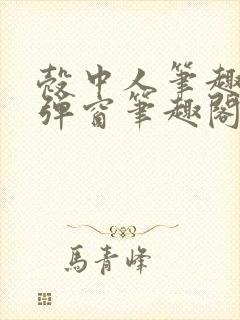 殼中人筆趣
彈窗筆趣閣
馬青峰